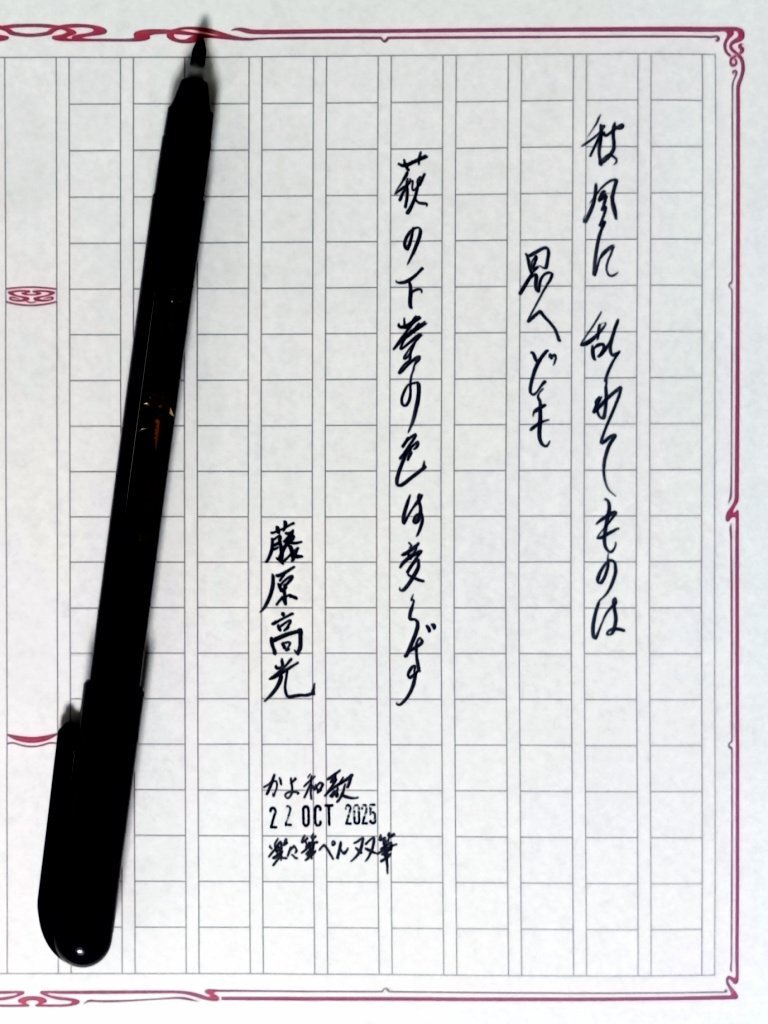 秋風に 乱れてものは
思へども
萩の下葉の色は変らず
藤原高光
かよ和歌
22 OCT 2025
楽々筆ぺん双筆